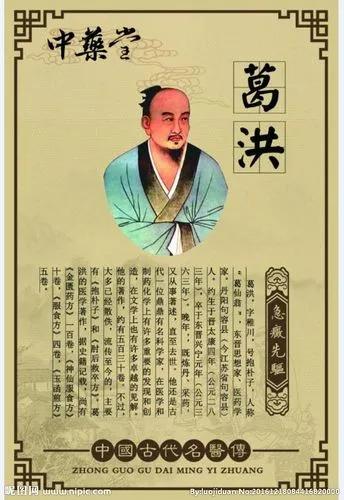 中藥堂
葛洪
急救先驅
葛洪,字稚川,号抱朴子,人称
“葛仙翁”。东晋思想家、医药学
家,丹阳句容县(今江苏省句容县)
人,约生于晋太康四年(公元二八
三年),卒于东晋兴宁元年(公元三
六三年)。晚年,既炼丹、采药,
又从事著述,直至去世。他还是古
代一位鼎鼎有名科学家,在医学和
制药化学上有许多重要的发现和创
造,在文学上也有许多卓越的见解。
他的著作,约有五百三十卷。不过,
大多已经散佚,流传至今的,主要
有《抱朴子》和《肘后救卒方》。葛
洪的医学著作,据史籍记载,尚有
《金匮药方》一百卷,《神仙服食方》
十卷,《服食方》四卷,《玉函煎方》
五卷。
中國古代名醫傳
ZHONG GUO GU DAI MING YI ZHUANG
昵图网 www.nipic.com
By:luojiduan No:20161218084416820000